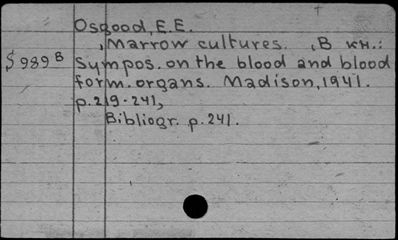 Osgood, E.E.
, Marrow cultures. , В кн.:
S 989 B Sympos. on the blood and blood
form. organs. Madison, 1941.
p. 219-241,
Bibliogr. p. 241.